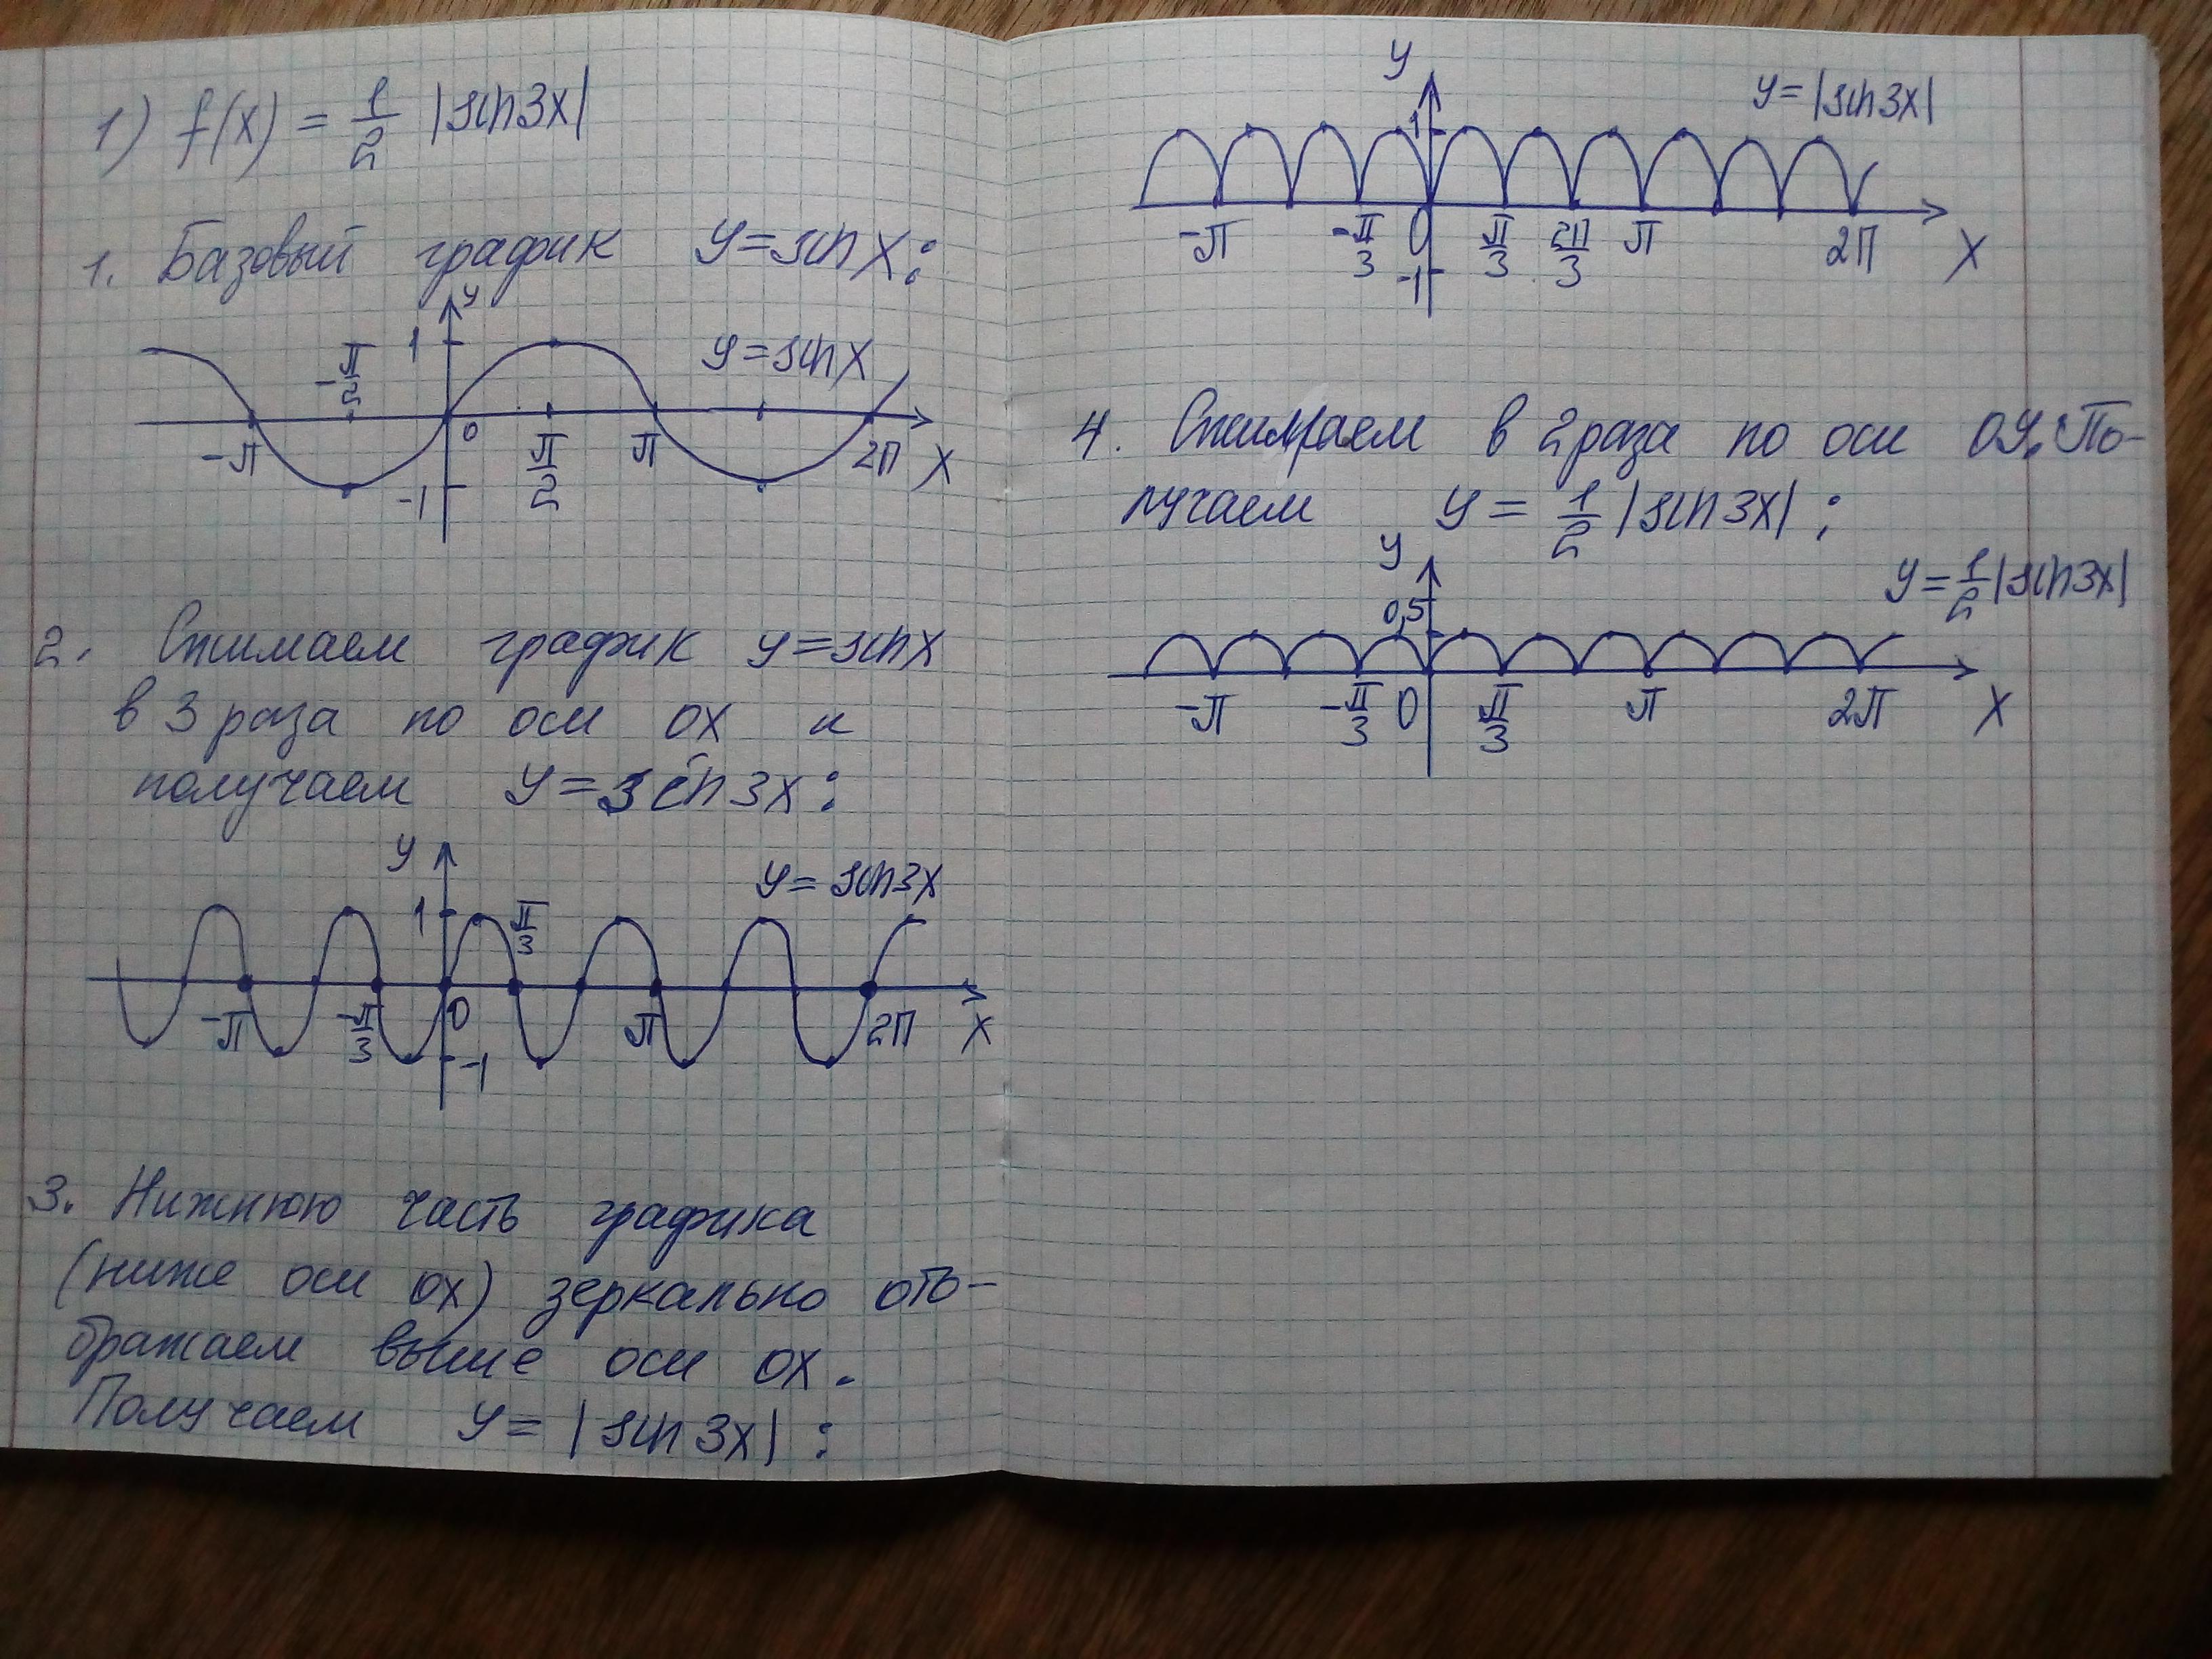 1) f(x) = 1/2 |sin3x|
1. Базовый график y=sin x:
y
1
y=sin x
-π/2
-π
0
π/2
π
2π
x
-1
2. Сжимаем график y=sinx
в 3 раза по оси ox и
получаем y=sin3x:
y
1
π/3
y=sin3x
-π
-π/3
0
π
2π
x
-1
3. Нижнюю часть графика
(ниже оси ox) зеркально ото-
бражаем выше оси ox.
Получаем y=|sin3x|:
y
1
y=|sin3x|
-π
-π/3
0
π/3
2π/3
π
2π
x
-1
4. Сжимаем в 2 раза по оси OY. По-
лучаем y = 1/2 |sin3x|:
y
y=1/2|sin3x|
0,5
-π
-π/3
0
π/3
π
2π
x